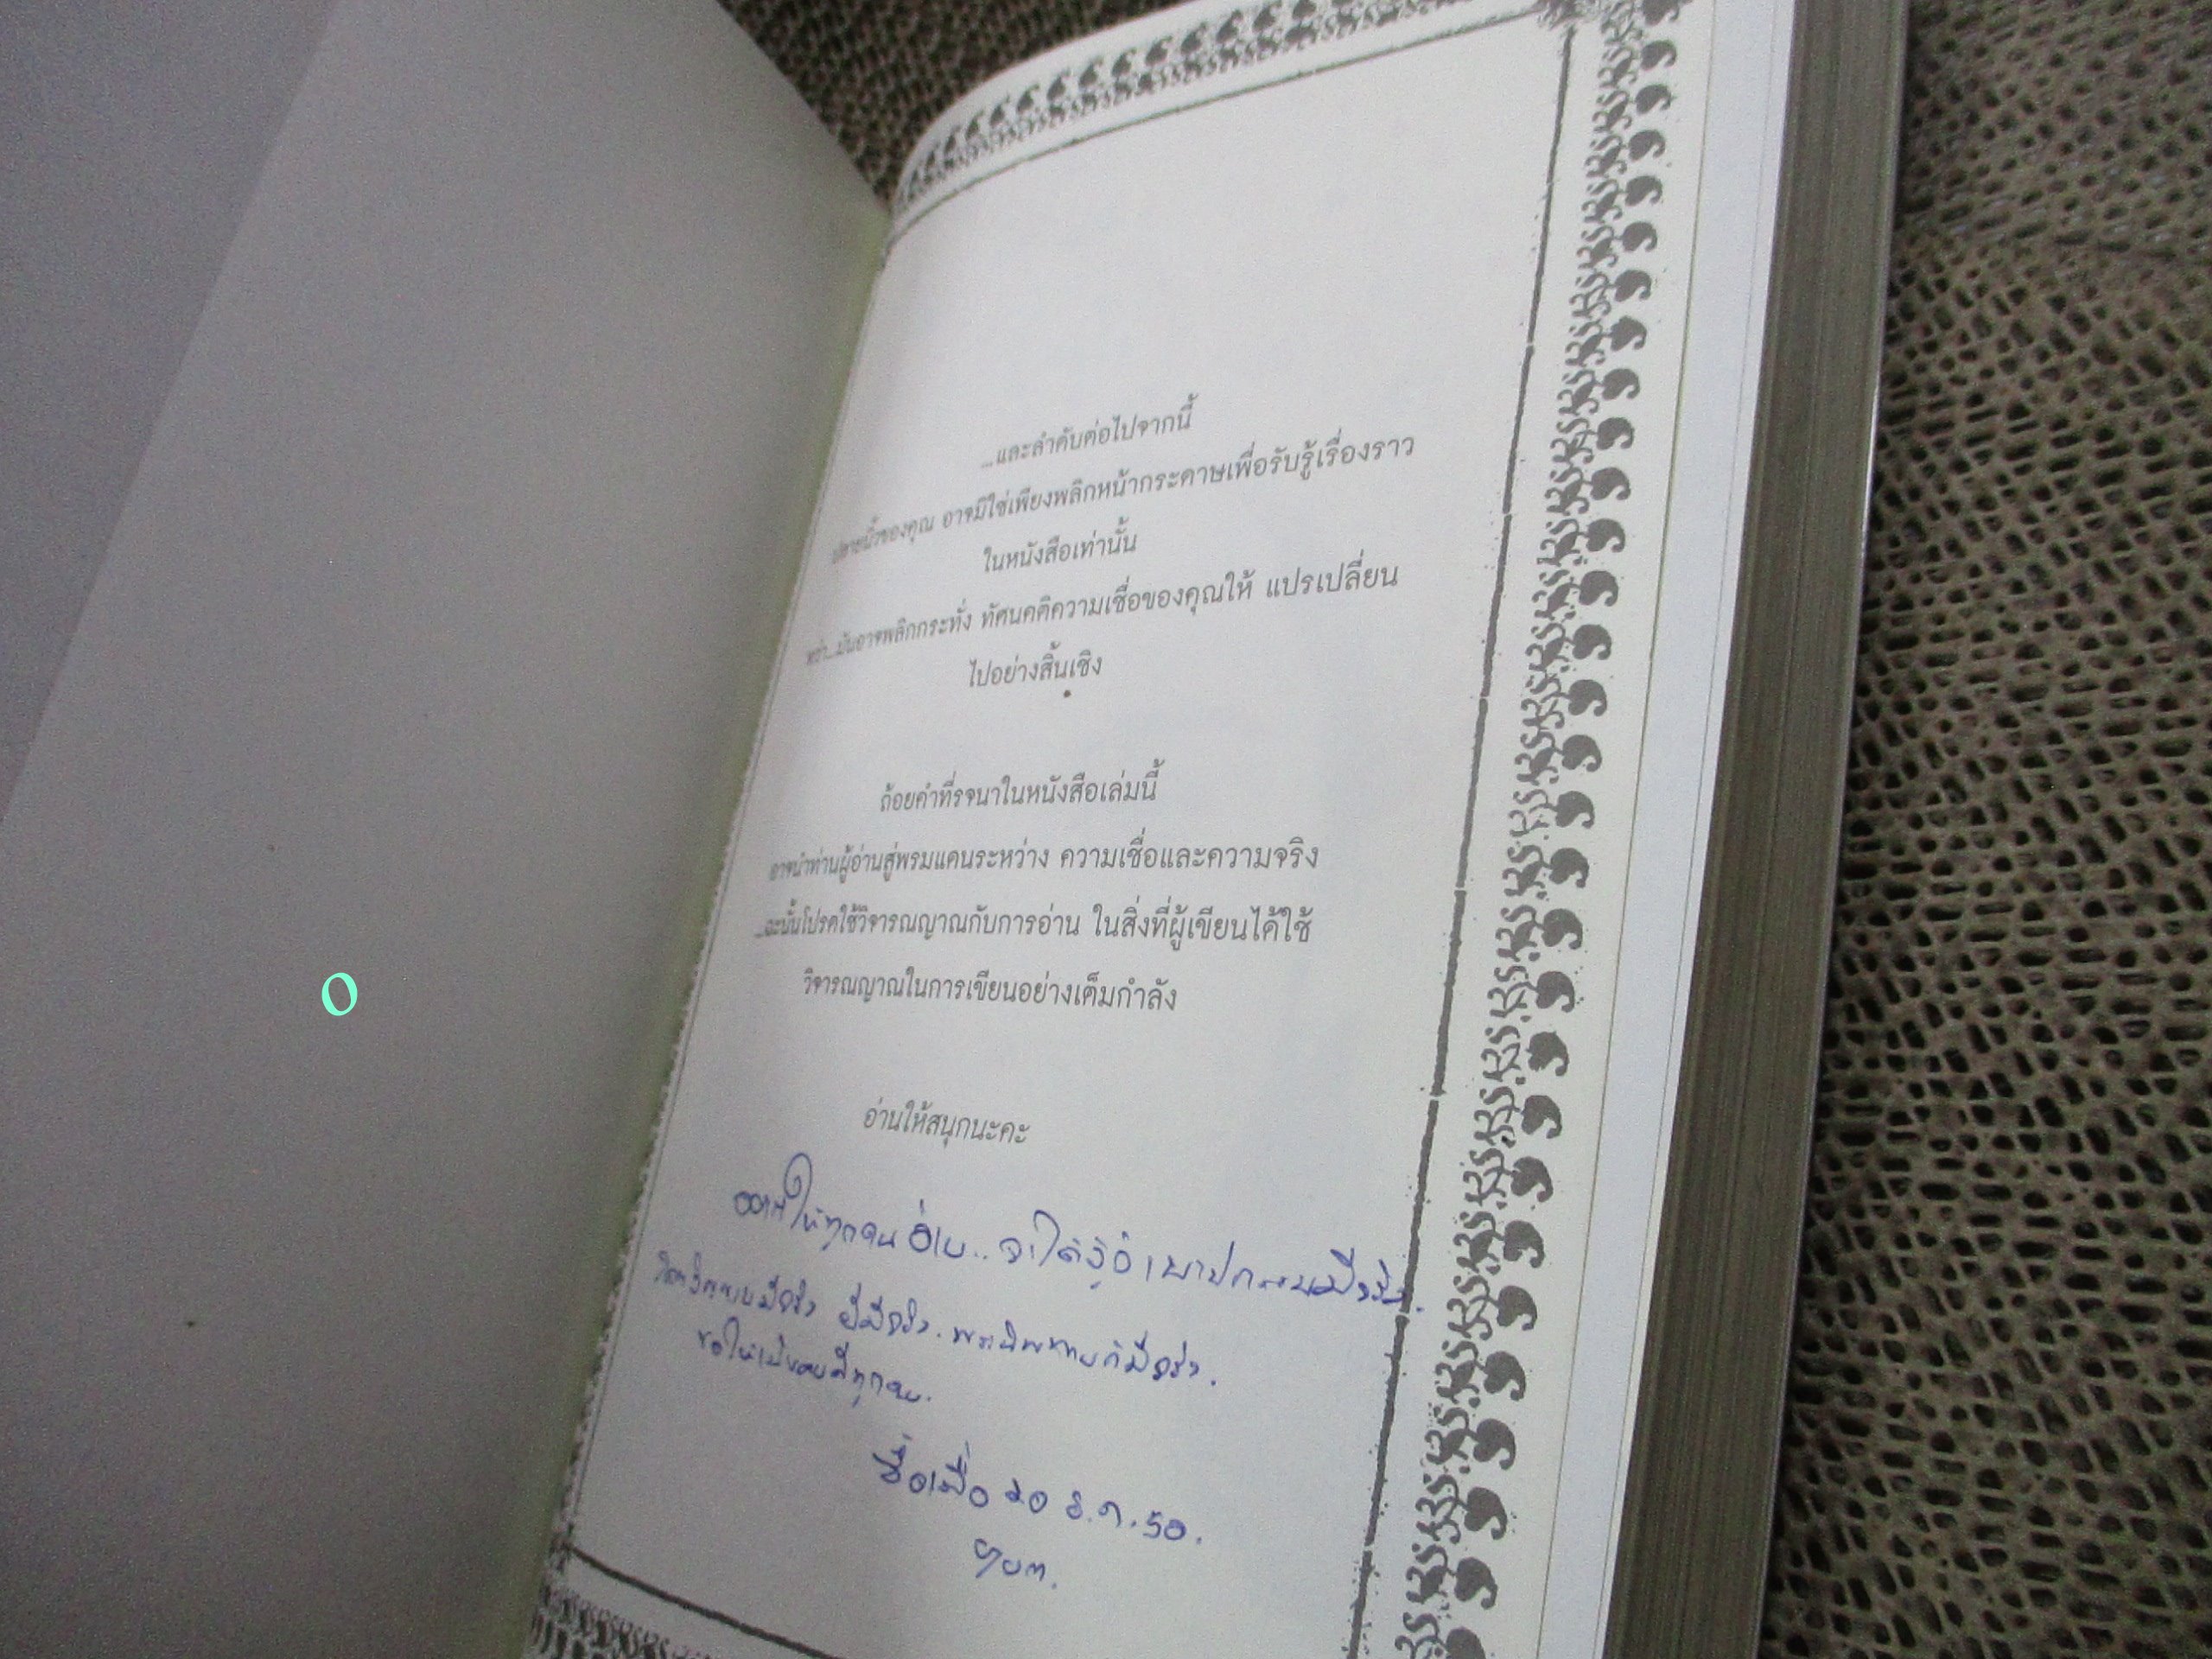 ...และลำดับต่อไปจากนี้
ปลายนิ้วของคุณ อาจมิใช่เพียงพลิกหน้ากระดาษเพื่อรับรู้เรื่องราว
ในหนังสือเท่านั้น
ทว่า...มันอาจพลิกกระทั่ง ทัศนคติความเชื่อของคุณให้ แปรเปลี่ยน
ไปอย่างสิ้นเชิง
ถ้อยคำที่รจนาในหนังสือเล่มนี้
อาจนำท่านผู้อ่านสู่พรมแดนระหว่าง ความเชื่อและความจริง
...ฉะนั้นโปรดใช้วิจารณญาณกับการอ่าน ในสิ่งที่ผู้เขียนได้ใช้
วิจารณญาณในการเขียนอย่างเต็มกำลัง
อ่านให้สนุกนะคะ
อยากให้ทุกคนอ่าน.. จะได้รู้ว่า บาปกรรมมีจริง.
มีจริง ผีมีจริง. พระนิพพานก็มีจริง.
ขอให้เป็นคนดีทุกคน.
ซื้อเมื่อ ๒๐ ธ.ค. 50.
O